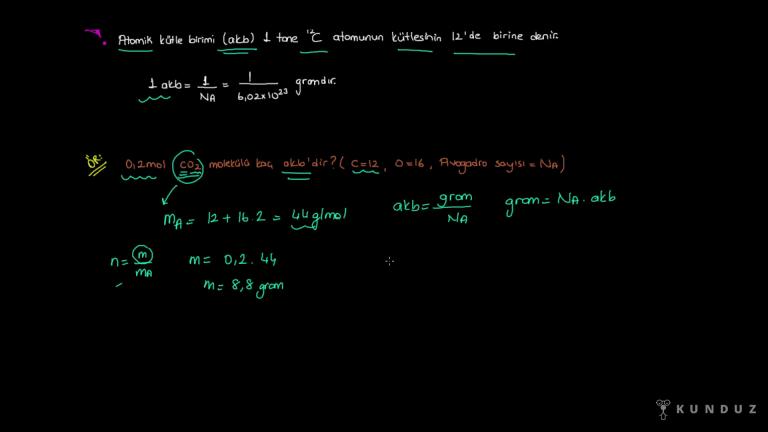 Atomik kütle birimi (akb) 1 tane ¹²C atomunun kütlesinin 12'de birine denir.
1 akb = 1/NA = 1/6,02x10²³ gramdır.
ÖR: 0,2mol CO₂ molekülü kaç akb'dir? (C=12, O=16, Avogadro sayısı = NA)
mA = 12 + 16.2 = 44 g/mol
akb = gram/NA gram = NA. akb
n = m/mA m = 0,2. 44
m = 8,8 gram
KUNDUZ